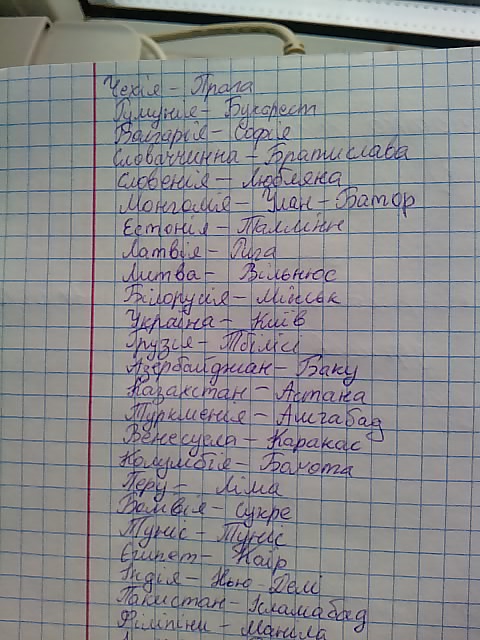 Чехія – Прага
Румунія – Бухарест
Болгарія – Софія
Словаччинна – Братислава
Словенія – Любляна
Монголія – Улан – Батор
Естонія – Таллінн
Латвія – Рига
Литва – Вільнюс
Білорусія – Мінськ
Україна – Київ
Грузія – Тбілісі
Азербайджан – Баку
Казахстан – Астана
Туркменія – Ашгабад
Венесуела – Каракас
Колумбія – Богота
Перу – Ліма
Болівія – Сукре
Туніс – Туніс
Єгипет – Каїр
Індія – Нью – Делі
Пакистан – Ісламабад
Філіпіни – Маніла